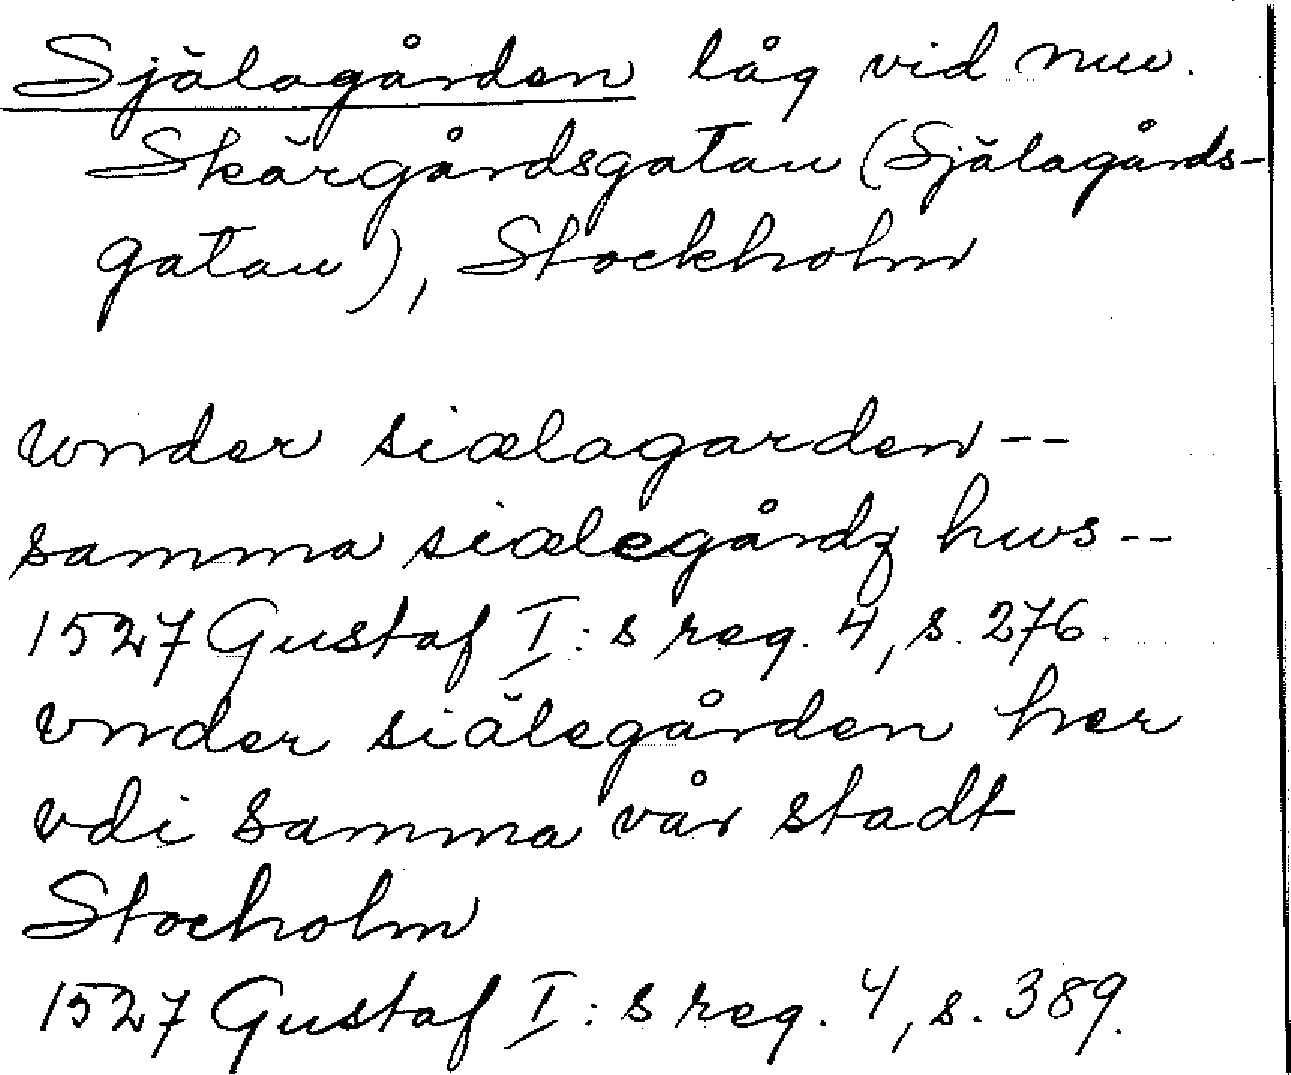 Själagården låg vid nuv.
Skärgårdsgatan (Själagårds-
gatan), Stockholm
wnder siælagarden --
samma siælegårdz hws --
1527 Gustaf I:s reg. 4, s. 276.
vnder siälegården her
vdi samma vår stadt
Stocholm
1527 Gustaf I:s reg. 4, s. 389.